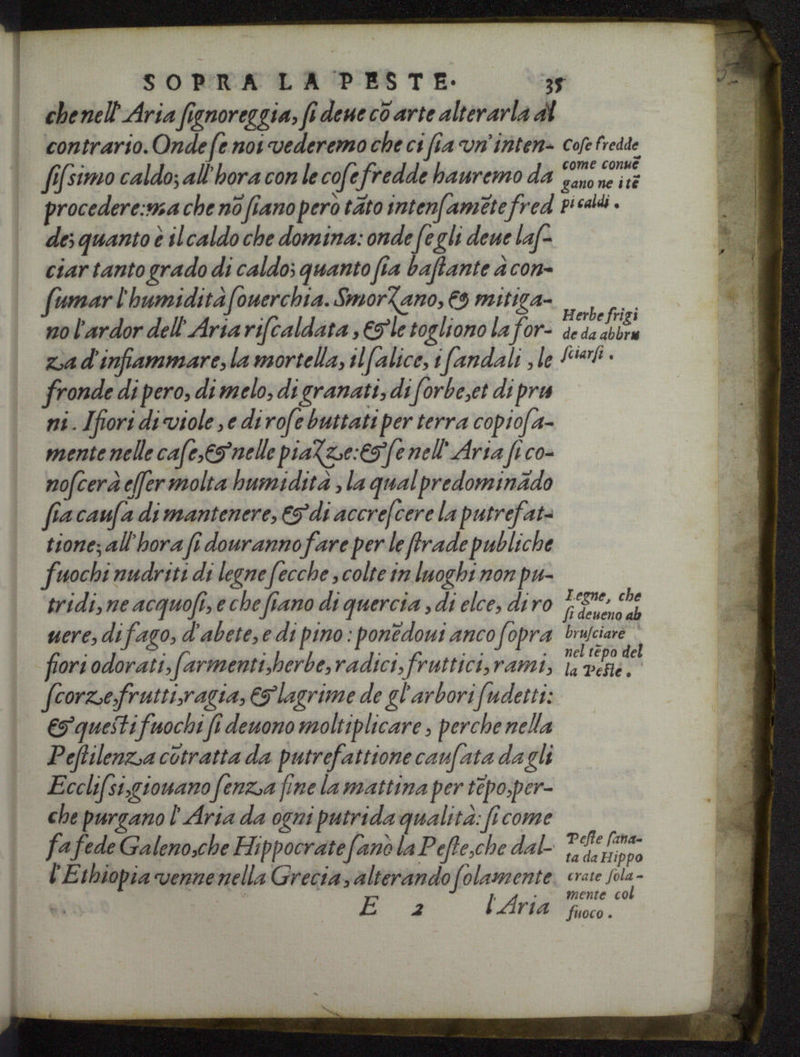 SOPRA LA PESTE. 35
che nell' Aria ſignoreggia, ſi deue cō arte alterarla al
contrario. Onde ſe noi vederemo che ci ſia vn' inten-
ſiſsimo caldo; all' hora con le coſe fredde hauremo da
procedere: ma che nō ſiano però tāto intenſamēte fred
de; quanto è il caldo che domina: onde ſe gli deue laſ-
ciar tanto grado di caldo; quanto ſia baſtante à con-
ſumar l'humidità ſouerchia. Smorzano, & mitiga-
no l'ardor dell' Aria riſcaldata, & le togliono la for-
za d'infiammare, la mortella, il ſalice, i ſandali, le
fronde di pero, di melo, di granati, di ſorbe, et di pru
ni. I fiori di viole, e di roſe buttati per terra copioſa-
mente nelle caſe, & nelle piazze: & ſe nell' Aria ſi co-
noſcerà eſſer molta humidità, la qual predominādo
ſia cauſa di mantenere, & di accreſcere la putrefat-
tione; all' hora ſi douranno fare per le ſtrade publiche
fuochi nudriti di legne ſecche, colte in luoghi non pu-
tridi, ne acquoſi, e che ſiano di quercia, di elce, di ro
uere, di fago, d'abete, e di pino: ponēdoui anco ſopra
fiori odorati, ſarmenti, herbe, radici, fruttici, rami,
ſcorze, frutti, ragia, & lagrime de gl'arbori ſudetti:
& queſti fuochi ſi deuono moltiplicare, perche nella
Peſtilenza cōtratta da putrefattione cauſata dagli
Eccliſsi, giouano ſenza fine la mattina per tēpo, per-
che purgano l'Aria da ogni putrida qualità: ſi come
fa fede Galeno, che Hippocrate ſanò la Peſte, che dal-
l'Ethiopia venne nella Grecia, alterando ſolamente
E 2 l'Aria
Coſe fredde
come conuē
gano ne i tē
pi caldi.
Herbe frigi
de da abbru
ſciarſi.
Legne, che
ſi deueno ab
bruſciare
nel tēpo del
la Peſte.
Peſte ſana-
ta da Hippo
crate ſola-
mente col
fuoco.